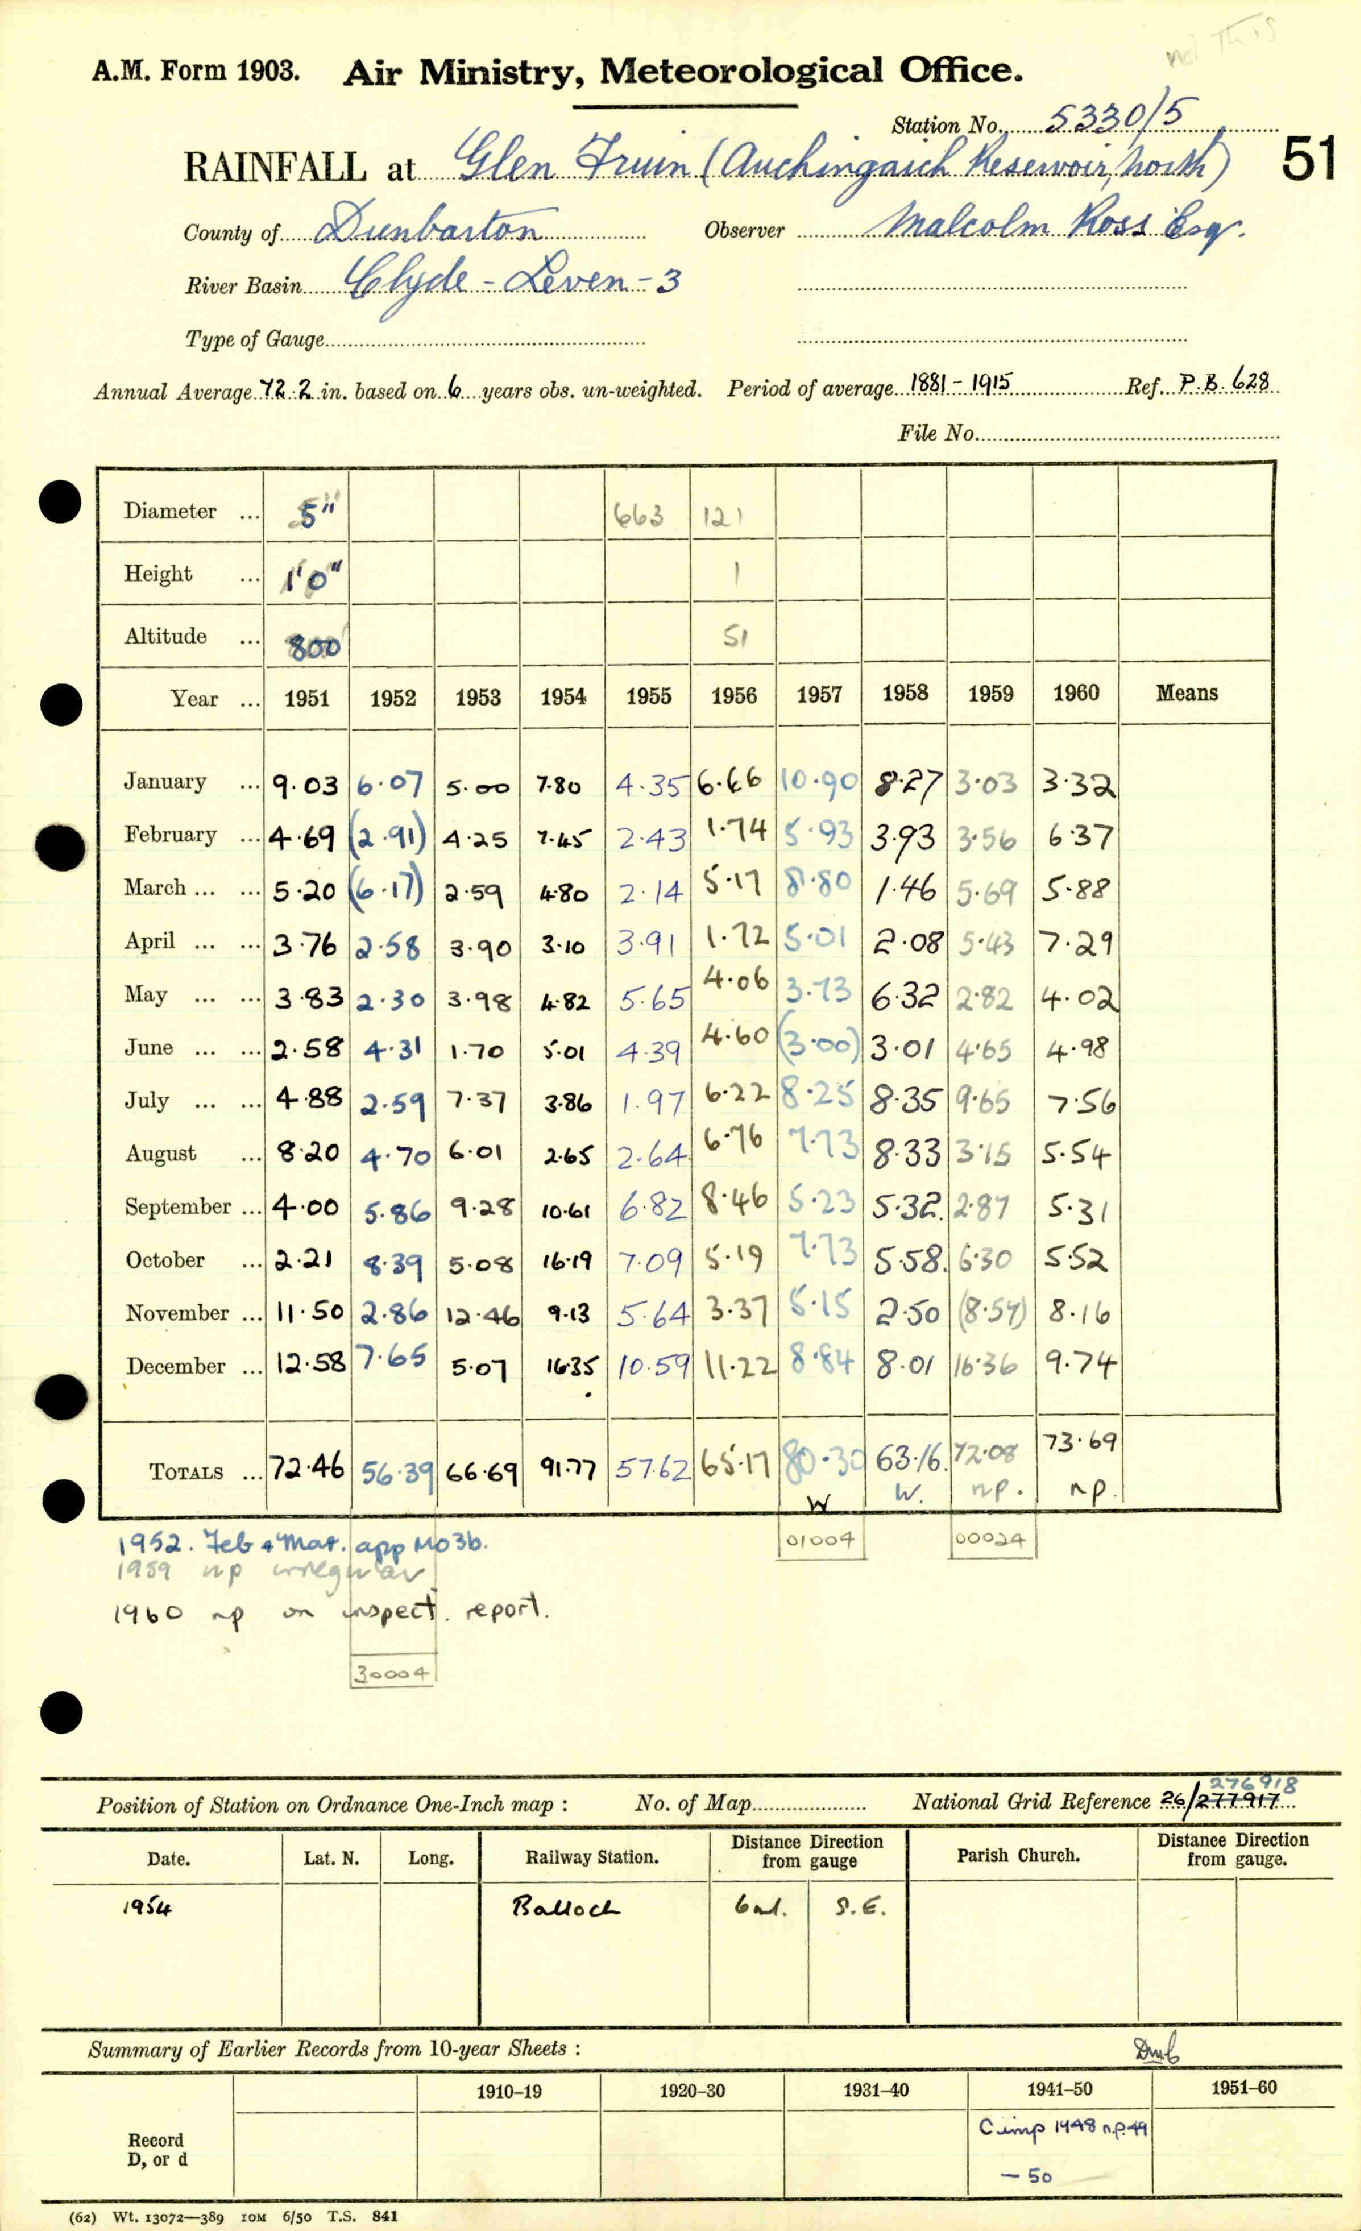 not This
A.M. Form 1903. Air Ministry, Meteorological Office.
Station No. 5330/5
RAINFALL at Glen Fruin (Auchingaich Reservoir, North) 51
County of Dunbarton Observer Malcolm Ross Esq.
River Basin Clyde - Leven - 3
Type of Gauge
Annual Average 72.2 in. based on 6 years obs. un-weighted. Period of average 1881 - 1915 Ref. P.B. 628
File No.
Diameter ... 5" 663 121
Height ... 1'0" 1
Altitude ... 800' 51
Year ... 1951 1952 1953 1954 1955 1956 1957 1958 1959 1960 Means
January ... 9.03 6.07 5.00 7.80 4.35 6.66 10.90 8.27 3.03 3.32
February ... 4.69 (2.91) 4.25 7.45 2.43 1.74 5.93 3.93 3.56 6.37
March ... ... 5.20 (6.17) 2.59 4.80 2.14 5.17 8.80 1.46 5.69 5.88
April ... ... 3.76 2.58 3.90 3.10 3.91 1.72 5.01 2.08 5.43 7.29
May ... ... 3.83 2.30 3.98 4.82 5.65 4.06 3.73 6.32 2.82 4.02
June ... ... 2.58 4.31 1.70 5.01 4.39 4.60 (3.00) 3.01 4.65 4.98
July ... ... 4.88 2.59 7.37 3.86 1.97 6.22 8.25 8.35 9.65 7.56
August ... 8.20 4.70 6.01 2.65 2.64 6.76 7.73 8.33 3.15 5.54
September ... 4.00 5.86 9.28 10.61 6.82 8.46 5.23 5.32. 2.87 5.31
October ... 2.21 8.39 5.08 16.19 7.09 5.19 7.73 5.58. 6.30 5.52
November ... 11.50 2.86 12.46 9.13 5.64 3.37 5.15 2.50 (8.57) 8.16
December ... 12.58 7.65 5.07 16.35 10.59 11.22 8.84 8.01 16.36 9.74
TOTALS ... 72.46 56.39 66.69 91.77 57.62 65.17 80.30 63.16. 72.08 73.69
W W. np. np.
1952. Feb & Mar. app MO3b. 01004 00024
1959 np irregular
1960 np on inspect. report.
30004
276918
Position of Station on Ordnance One-Inch map : No. of Map National Grid Reference 26/277917
Date. Lat. N. Long. Railway Station. Distance Direction from gauge Parish Church. Distance Direction from gauge.
1954 Balloch 6ml. S.E.
Summary of Earlier Records from 10-year Sheets : Dmb
1910–19 1920–30 1931–40 1941–50 1951–60
Record
D, or d
C imp 1948 n.p. 49
— 50
(62) Wt. 13072—389 10M 6/50 T.S. 841